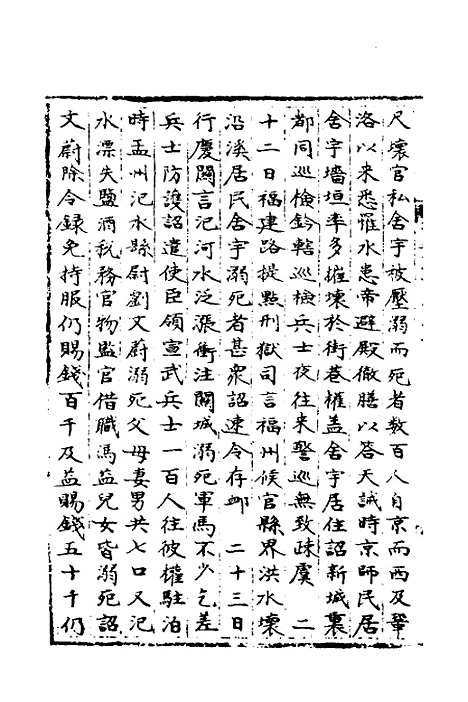 尺壊官私舍宇被壓溺而死者数百人自京而西及鞏
洛以来悉罹水患帝避殿徹膳以答天誡時京師民居
舍宇墻垣率多摧壊於街巷權盖舍宇居住詔新城裏
都同巡檢鈐轄巡檢兵士夜往来警巡無致疎虞　二
十二日福建路提點刑獄司言福州候官縣界洪水壊
沿溪居民舍宇溺死者甚衆詔速令存䘏　二十三日
行慶關言汜河水泛漲衝注關城溺死軍馬不少乞差
兵士防護詔遣使臣領宣武兵士一百人往彼權駐泊
時孟州汜水縣尉劉文蔚溺死父母妻男共七口又汜
水漂失監酒税務官物監官借職馮益兒女皆溺死詔
文蔚除令録免持服仍賜錢百千及益賜錢五十千仍